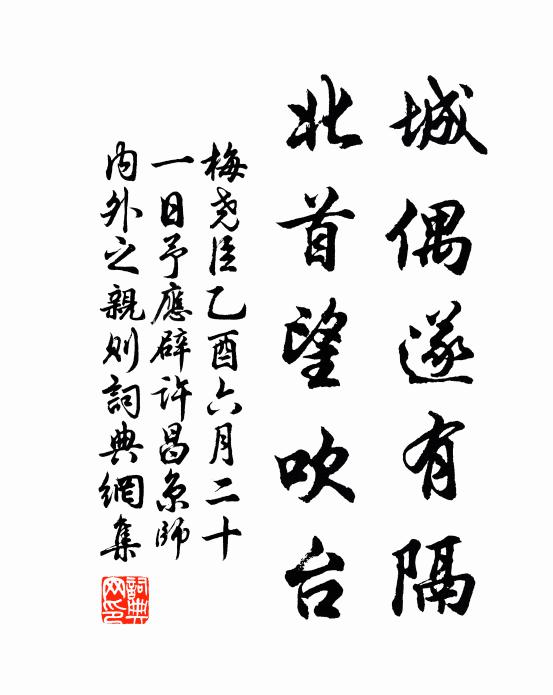 城偶遂有隔
北首望吹台
梅尧臣乙酉六月二十
一日予應辟许昌京師
内外之親则詞典網集
詞典網印